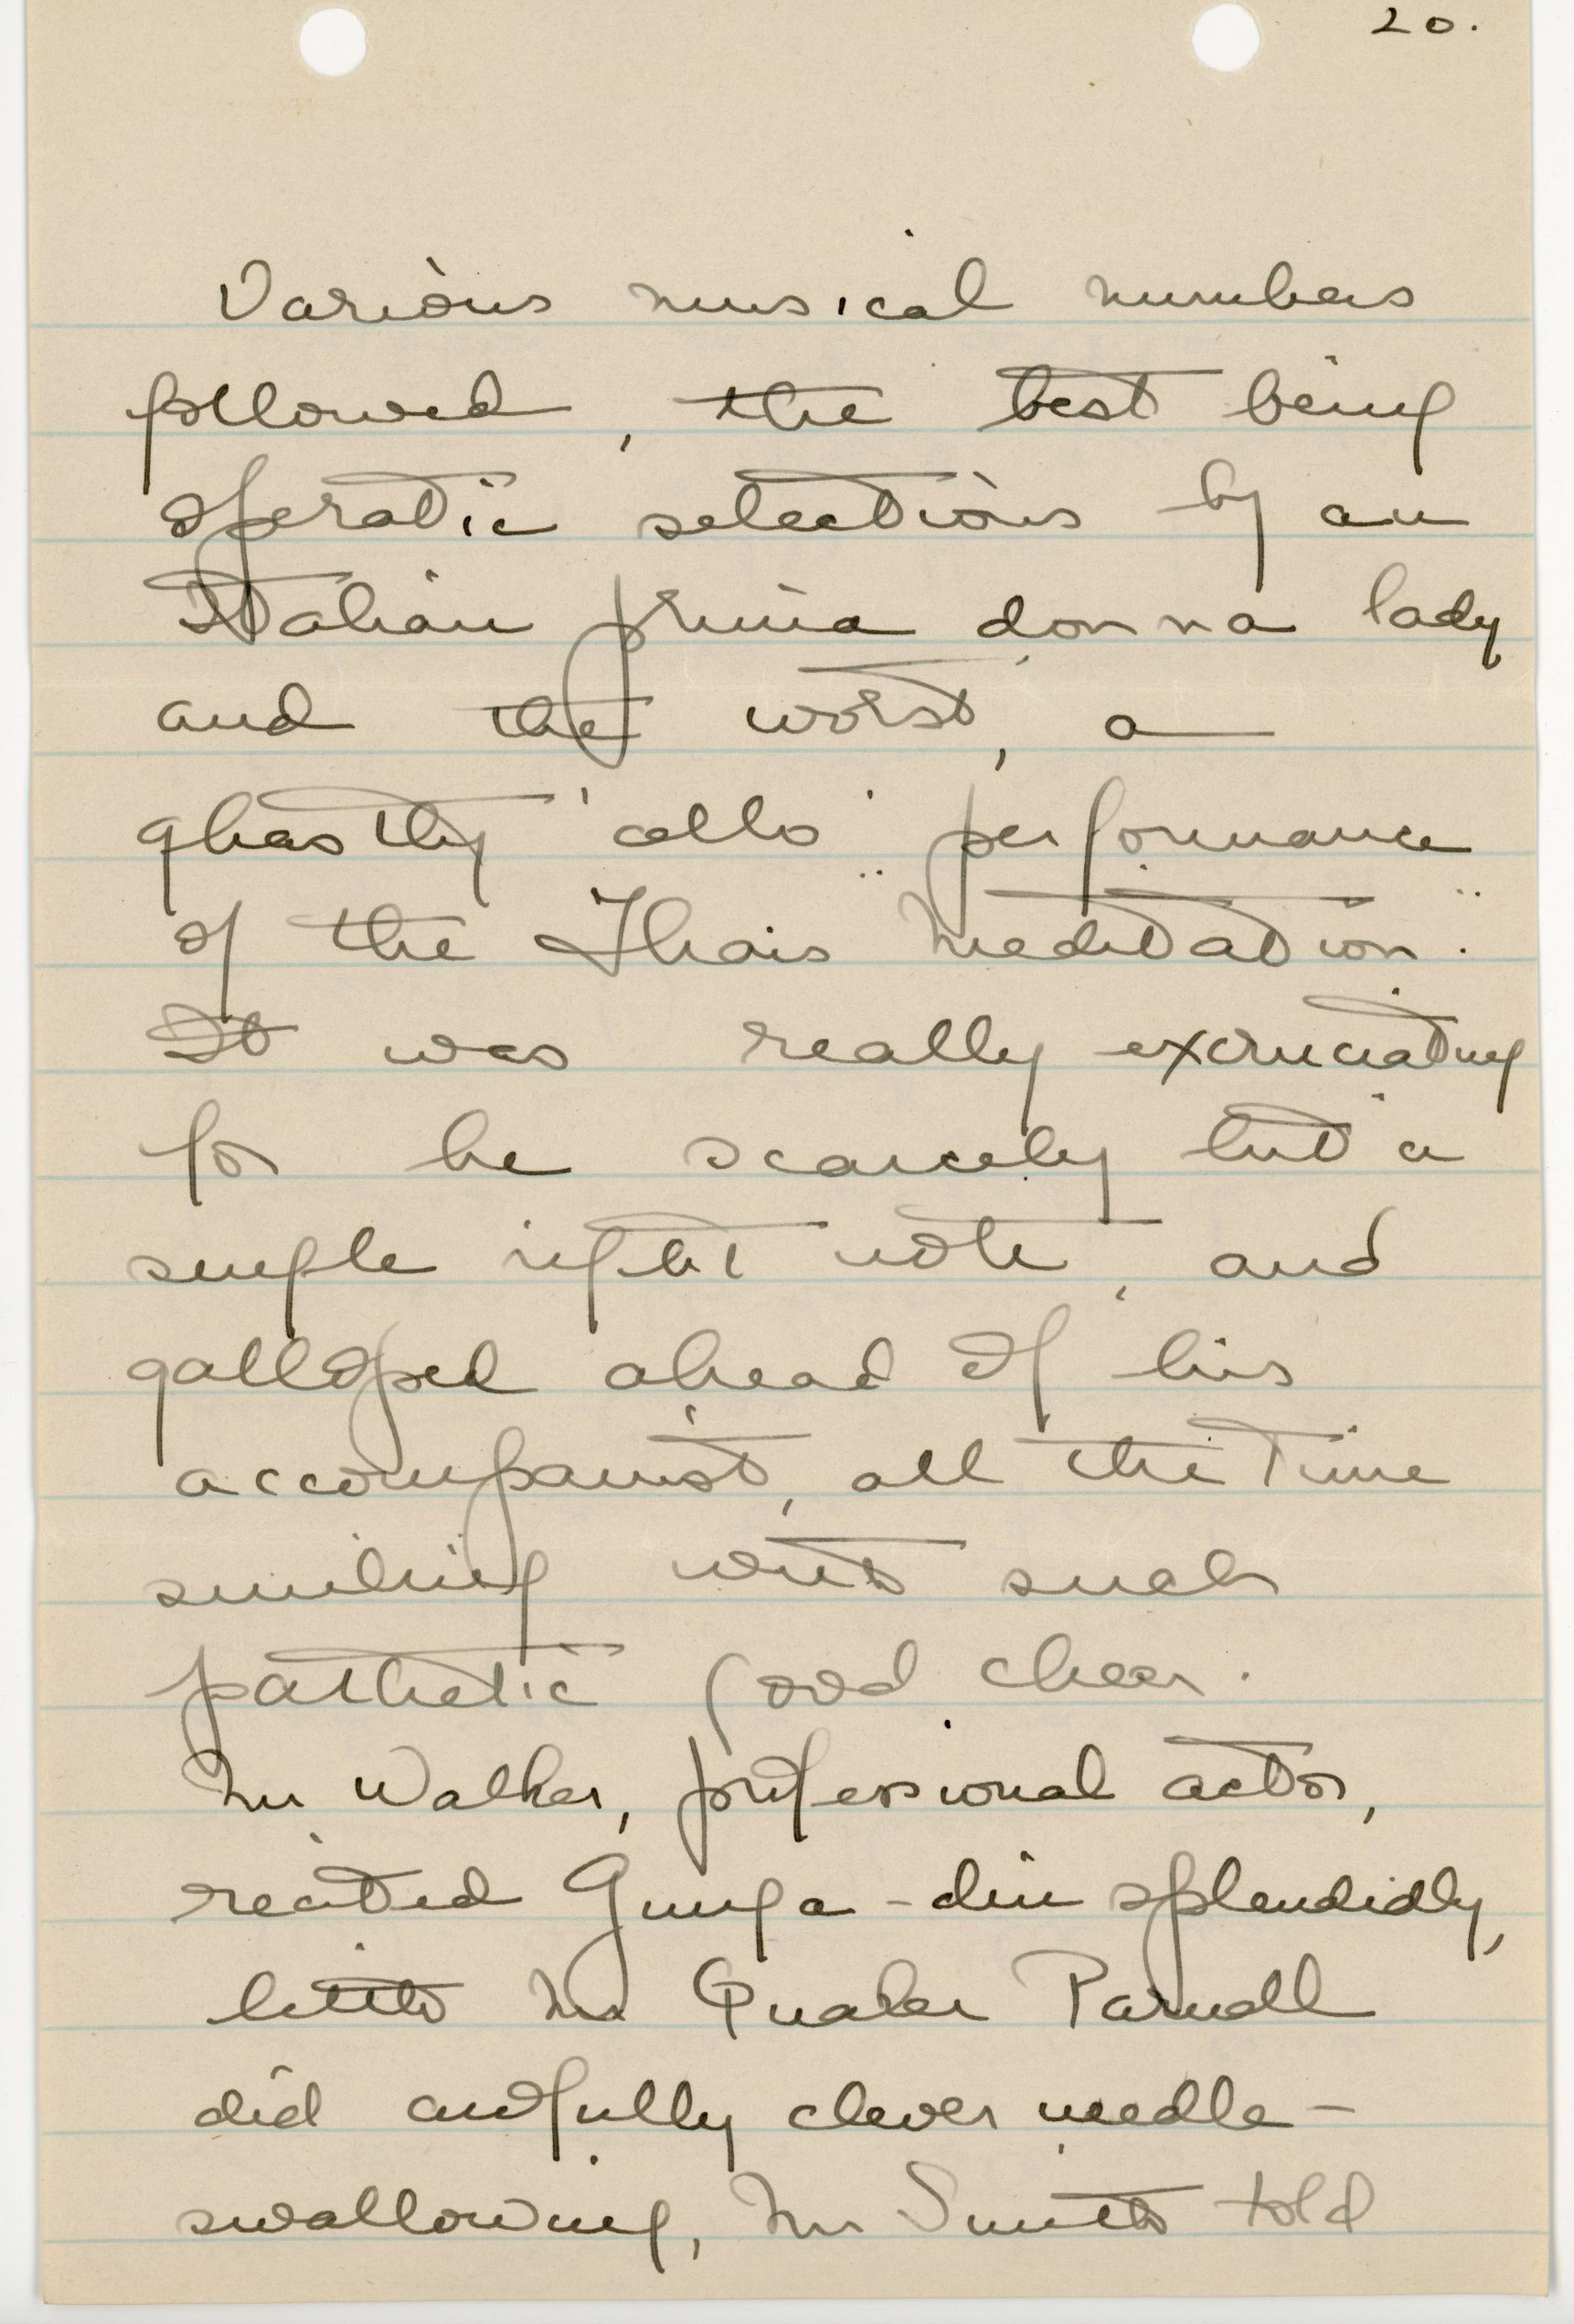 20.
Various musical numbers
followed, the best being
operatic selections by an
Italian prima donna lady,
and the worst, a
ghastly 'cello performance
of the "Thais Meditation."
It was really excruciating
for he scarcely hit a
single right note, and
galloped ahead of his
accompanist, all the time
smiling with such
pathetic good cheer.
Mr Walker, professional actor,
recited Gunga-din splendidly,
little Mr Quaker Parnell
did awfully clever needle-
swallowing, Mr Smith told